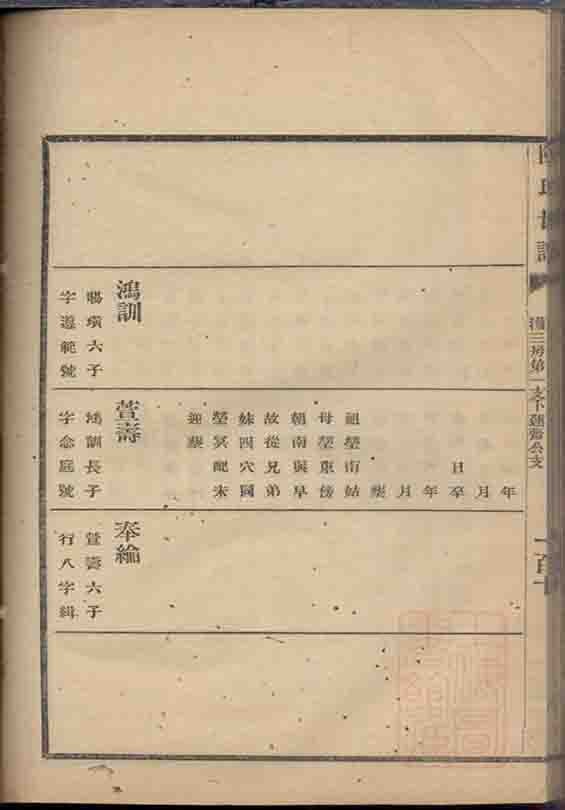 世譜
三房第一支下
公支
一百十
鴻訓
暘璜六子
字遵範號
年
月
日卒
年
月
葬
祖塋南姑
母塋東傍
朝南與早
故從兄弟
妹四穴同
塋冥配宋
迎葵
萱壽
鴻訓長子
字念庭號
奉綸
萱壽六子
行八字緝